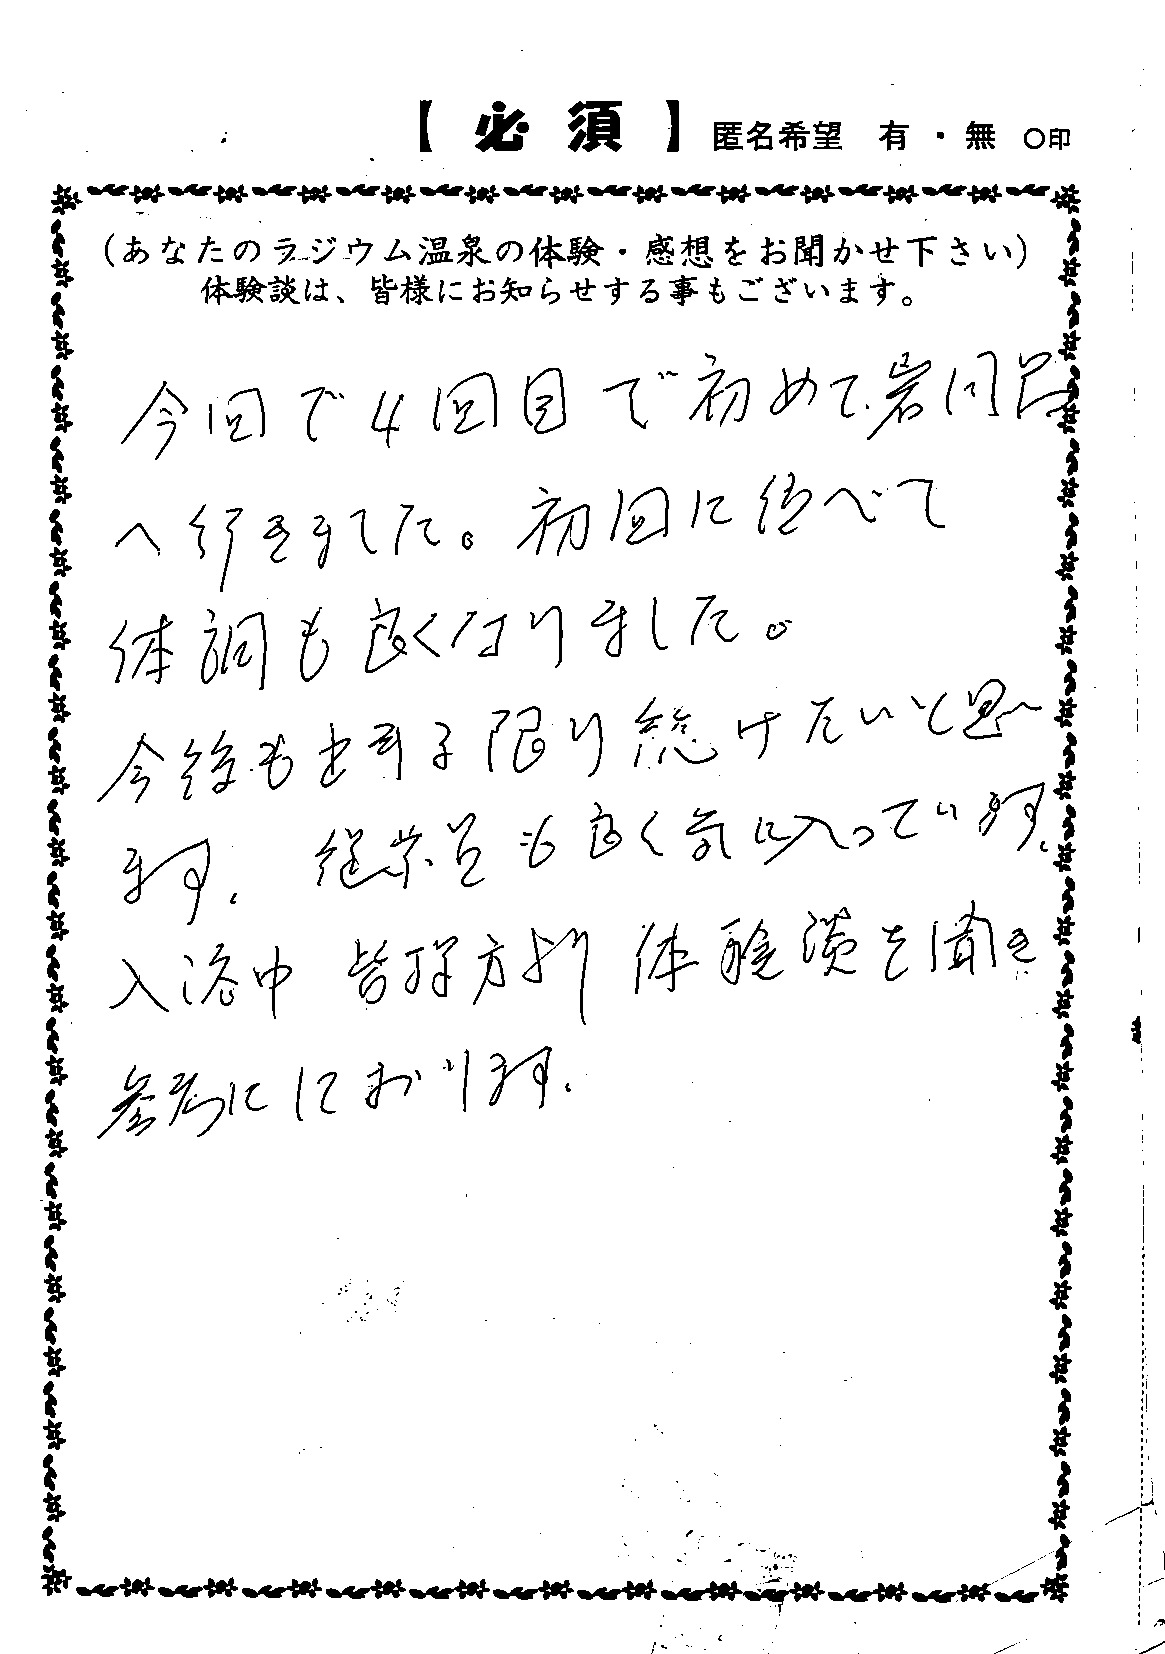 【 必 須 】 匿名希望 有 ・ 無 ○印
(あなたのラジウム温泉の体験・感想をお聞かせ下さい)
体験談は、皆様にお知らせする事もございます。
今回で4回目で初めて岩
へ行きました。初回に
体調も良くなりました。
今後も出来る限り続けたいと思い
ます。従業員も良く気に入っています。
入浴中 皆様方より 体験談を聞き
参考にしております。